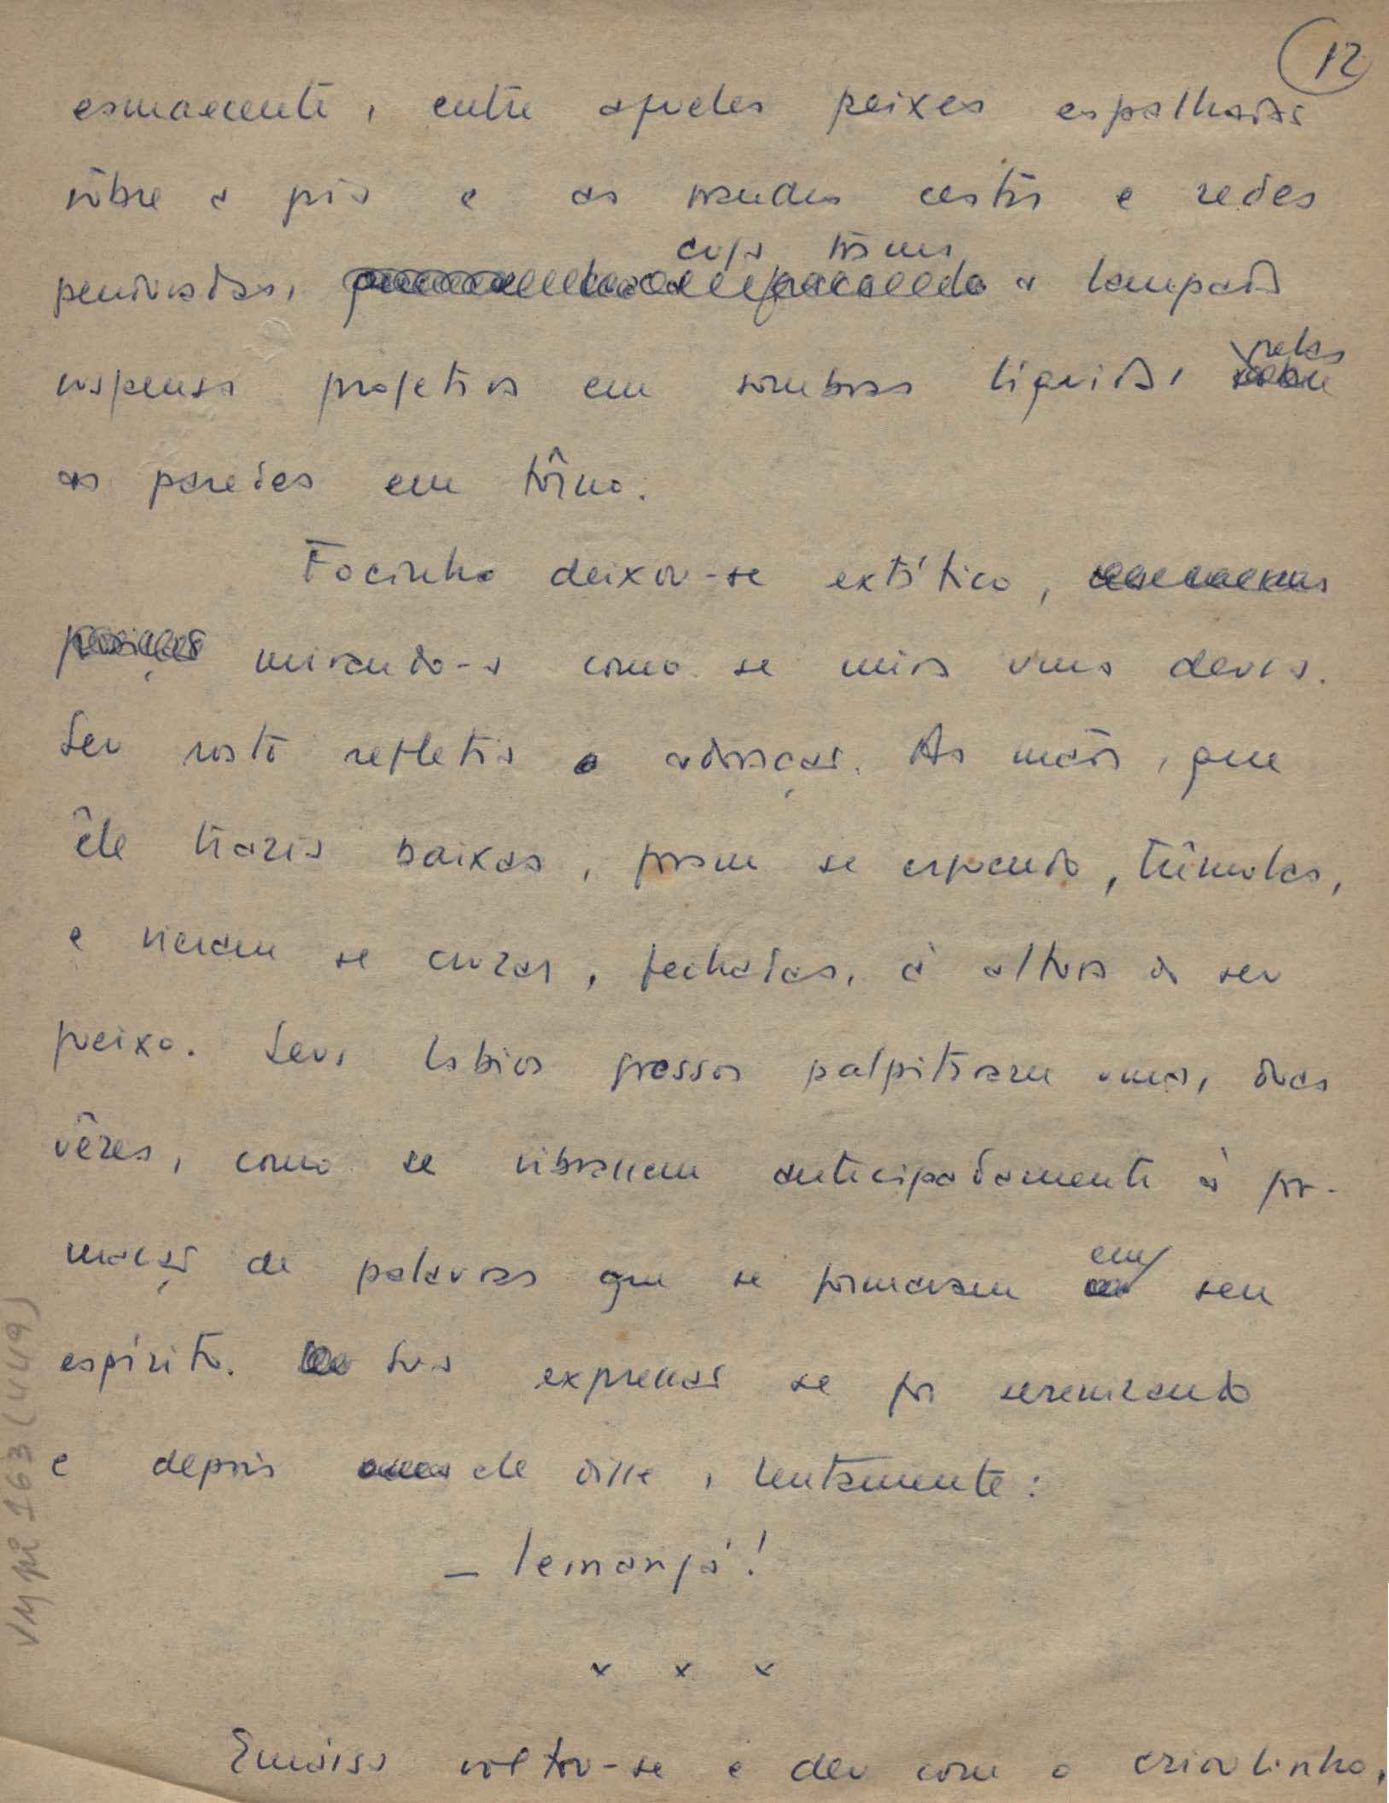 12
esmaecente, entre aqueles peixes espalhados
sôbre a pia e as grandes cestas e redes
penduradas, cuja trama a lampada
suspensa projetava em sombras líquidas, pelas
as paredes em tôrno.
Focinho deixou-se extático,
mirando-a como se mira uma deusa.
Seu rosto refletia a adoração. As mãos, que
êle trazia baixas, foram se erguendo, trêmulas,
e vieram se cruzar, fechadas, à altura do seu
queixo. Seus labios grossos palpitaram uma, duas
vêzes, como se vibrassem antecipadamente à for-
mação de palavras que se formavam em seu
espírito. Sua expressão se foi serenizando
e depois ele disse, lentamente:
— Iemanjá!
x x x
voltou-se e deu com o crioulinho,
VM pi 163 (449)